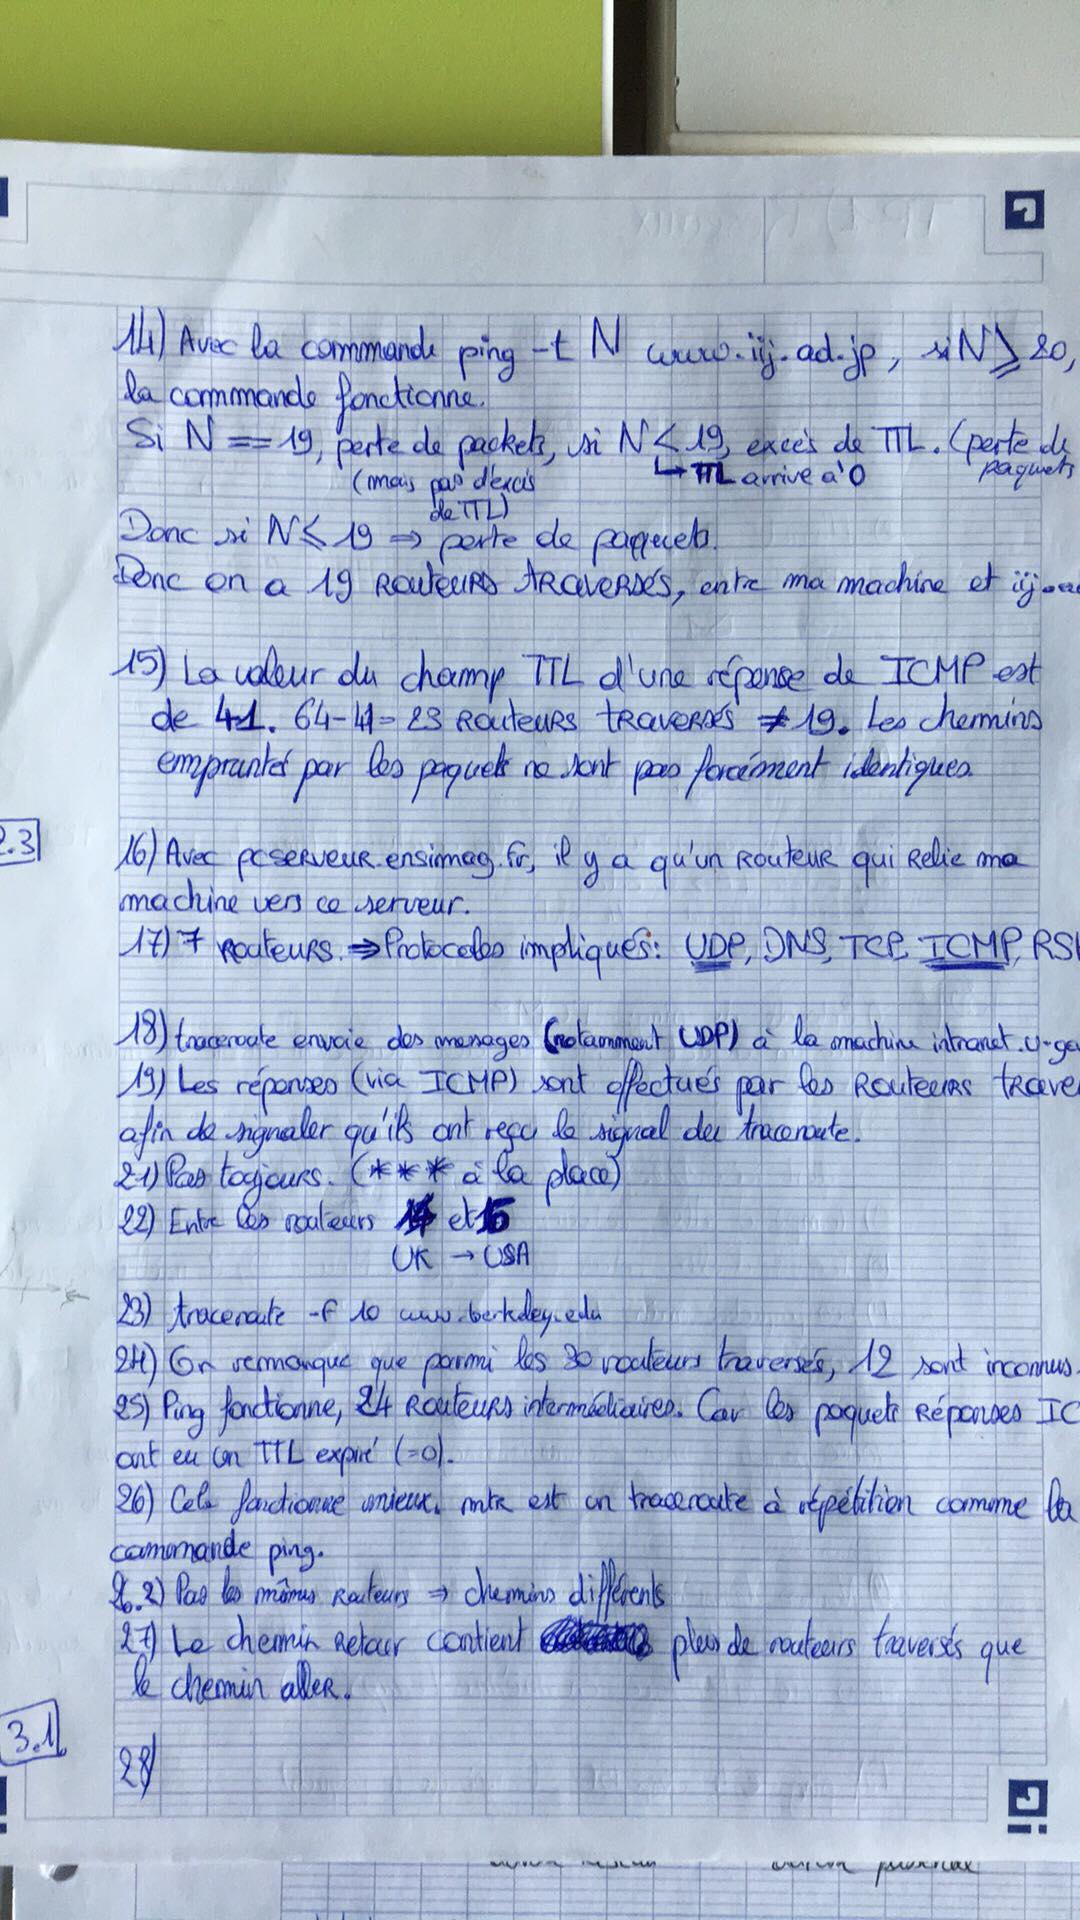 14) Avec la commande ping -t N www.iij.ad.jp, si N ⩾ 20,
la commande fonctionne.
Si N == 19, perte de packets, si N < 19, excès de TTL. (perte de
paquets
(mais pas d'excès
↳ TTL arrive à 0
de TTL)
Donc si N ⩽ 19 ⇒ perte de paquets.
Donc on a 19 ROUTEURS TRAVERSÉS, entre ma machine et iij.
15) La valeur du champ TTL d'une réponse de ICMP est
de 41. 64-41= 23 ROUTEURS TRAVERSÉS ≠ 19. Les chemins
empruntés par les paquets ne sont pas forcément identiques.
2.3
16) Avec pcserveur.ensimag.fr, il y a qu'un ROUTEUR qui Relie ma
machine vers ce serveur.
17) 7 ROUTEURS. ⇒ Protocoles impliqués: UDP, DNS, TCP, ICMP,
18) traceroute envoie des messages (notamment UDP) à la machine intranet.u-ga
19) Les réponses (via ICMP) sont effectués par les ROUTEURS trave
afin de signaler qu'ils ont reçu le signal du traceroute.
21) Pas toujours. (*** à la place)
22) Entre les routeurs et 15
UK → USA
23) traceroute -f 10 www.berkeley.edu
24) On remmarque que parmi les 30 routeurs traversés, 12 sont inconnus.
25) Ping fonctionne, 24 ROUTEURS intermédiaires. Car les paquets Réponses IC
ont eu un TTL expiré (=0).
26) Cela fonctionne mieux. mtr est un traceroute à répétition comme la
commande ping.
26.2) Pas les mêmes Routeurs ⇒ chemins différents
27) Le chemin Retour contient plus de routeurs traversés que
le chemin aller.
3.1
28)